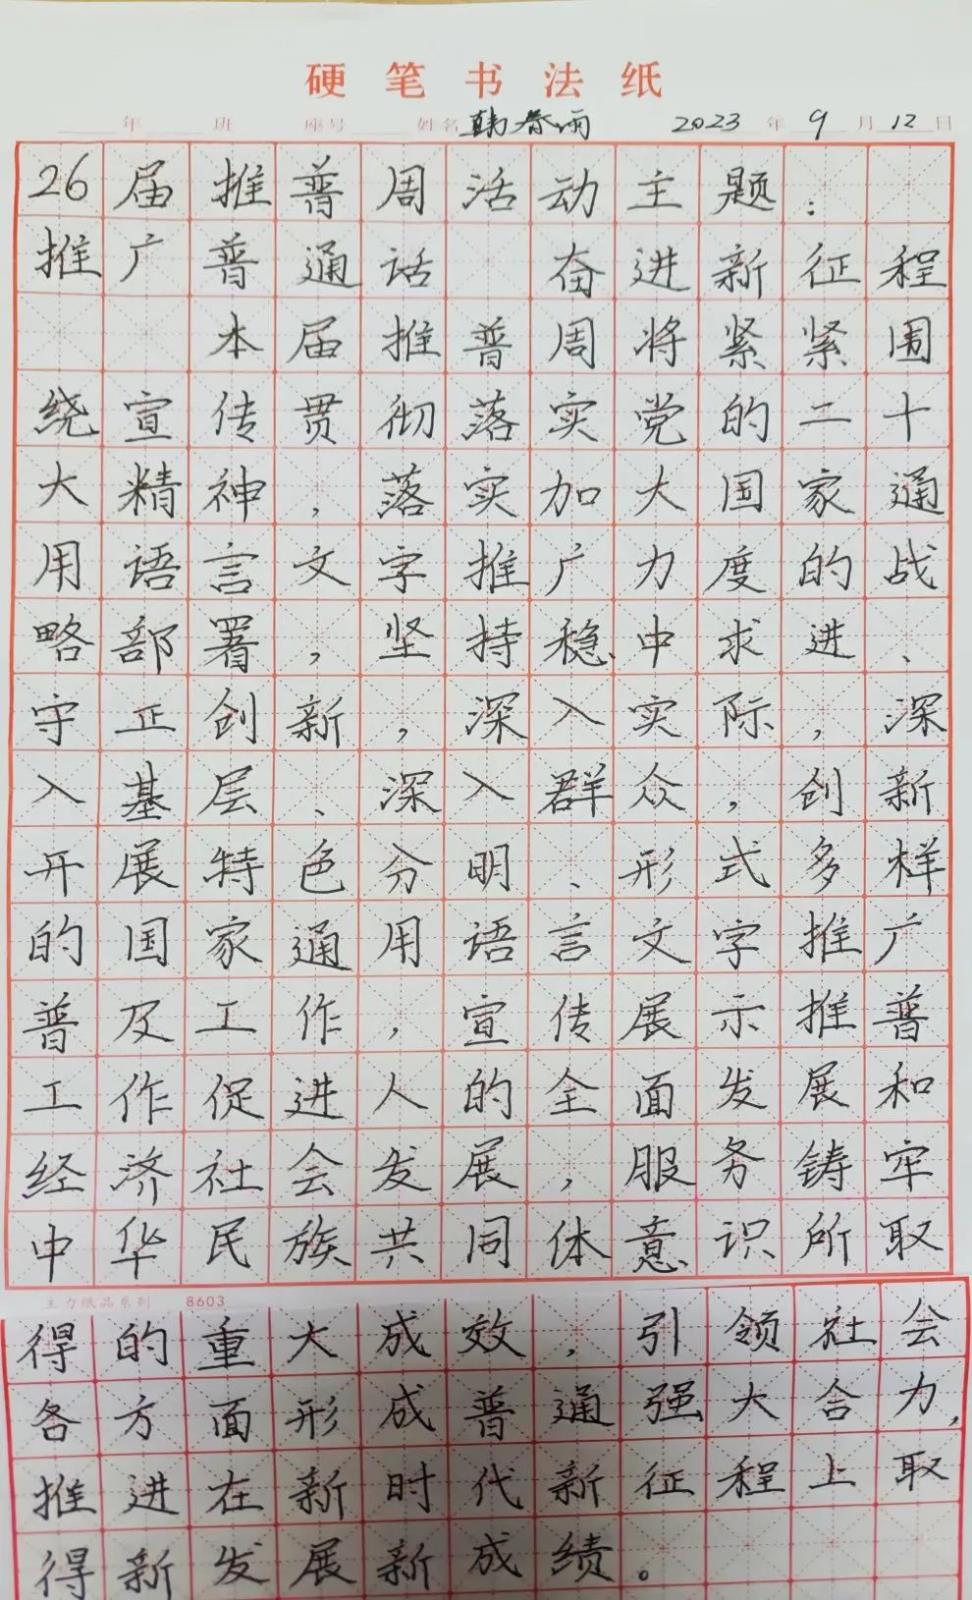 硬笔书法纸
年 班 座号 姓名 韩春雨 2023年9月12日
26届推普周活动主题：
推广普通话 奋进新征程
本届推普周将紧紧围
绕宣传贯彻落实党的二十
大精神，落实加大国家通
用语言文字推广力度的战
略部署，坚持稳中求进、
守正创新，深入实际，深
入基层、深入群众，创新
开展特色分明、形式多样
的国家通用语言文字推广
普及工作，宣传展示推普
工作促进人的全面发展和
经济社会发展，服务铸牢
中华民族共同体意识所取
主力纸品系列 8603
得的重大成效，引领社会
各方面形成普通强大合力，
推进在新时代新征程上取
得新发展新成绩。